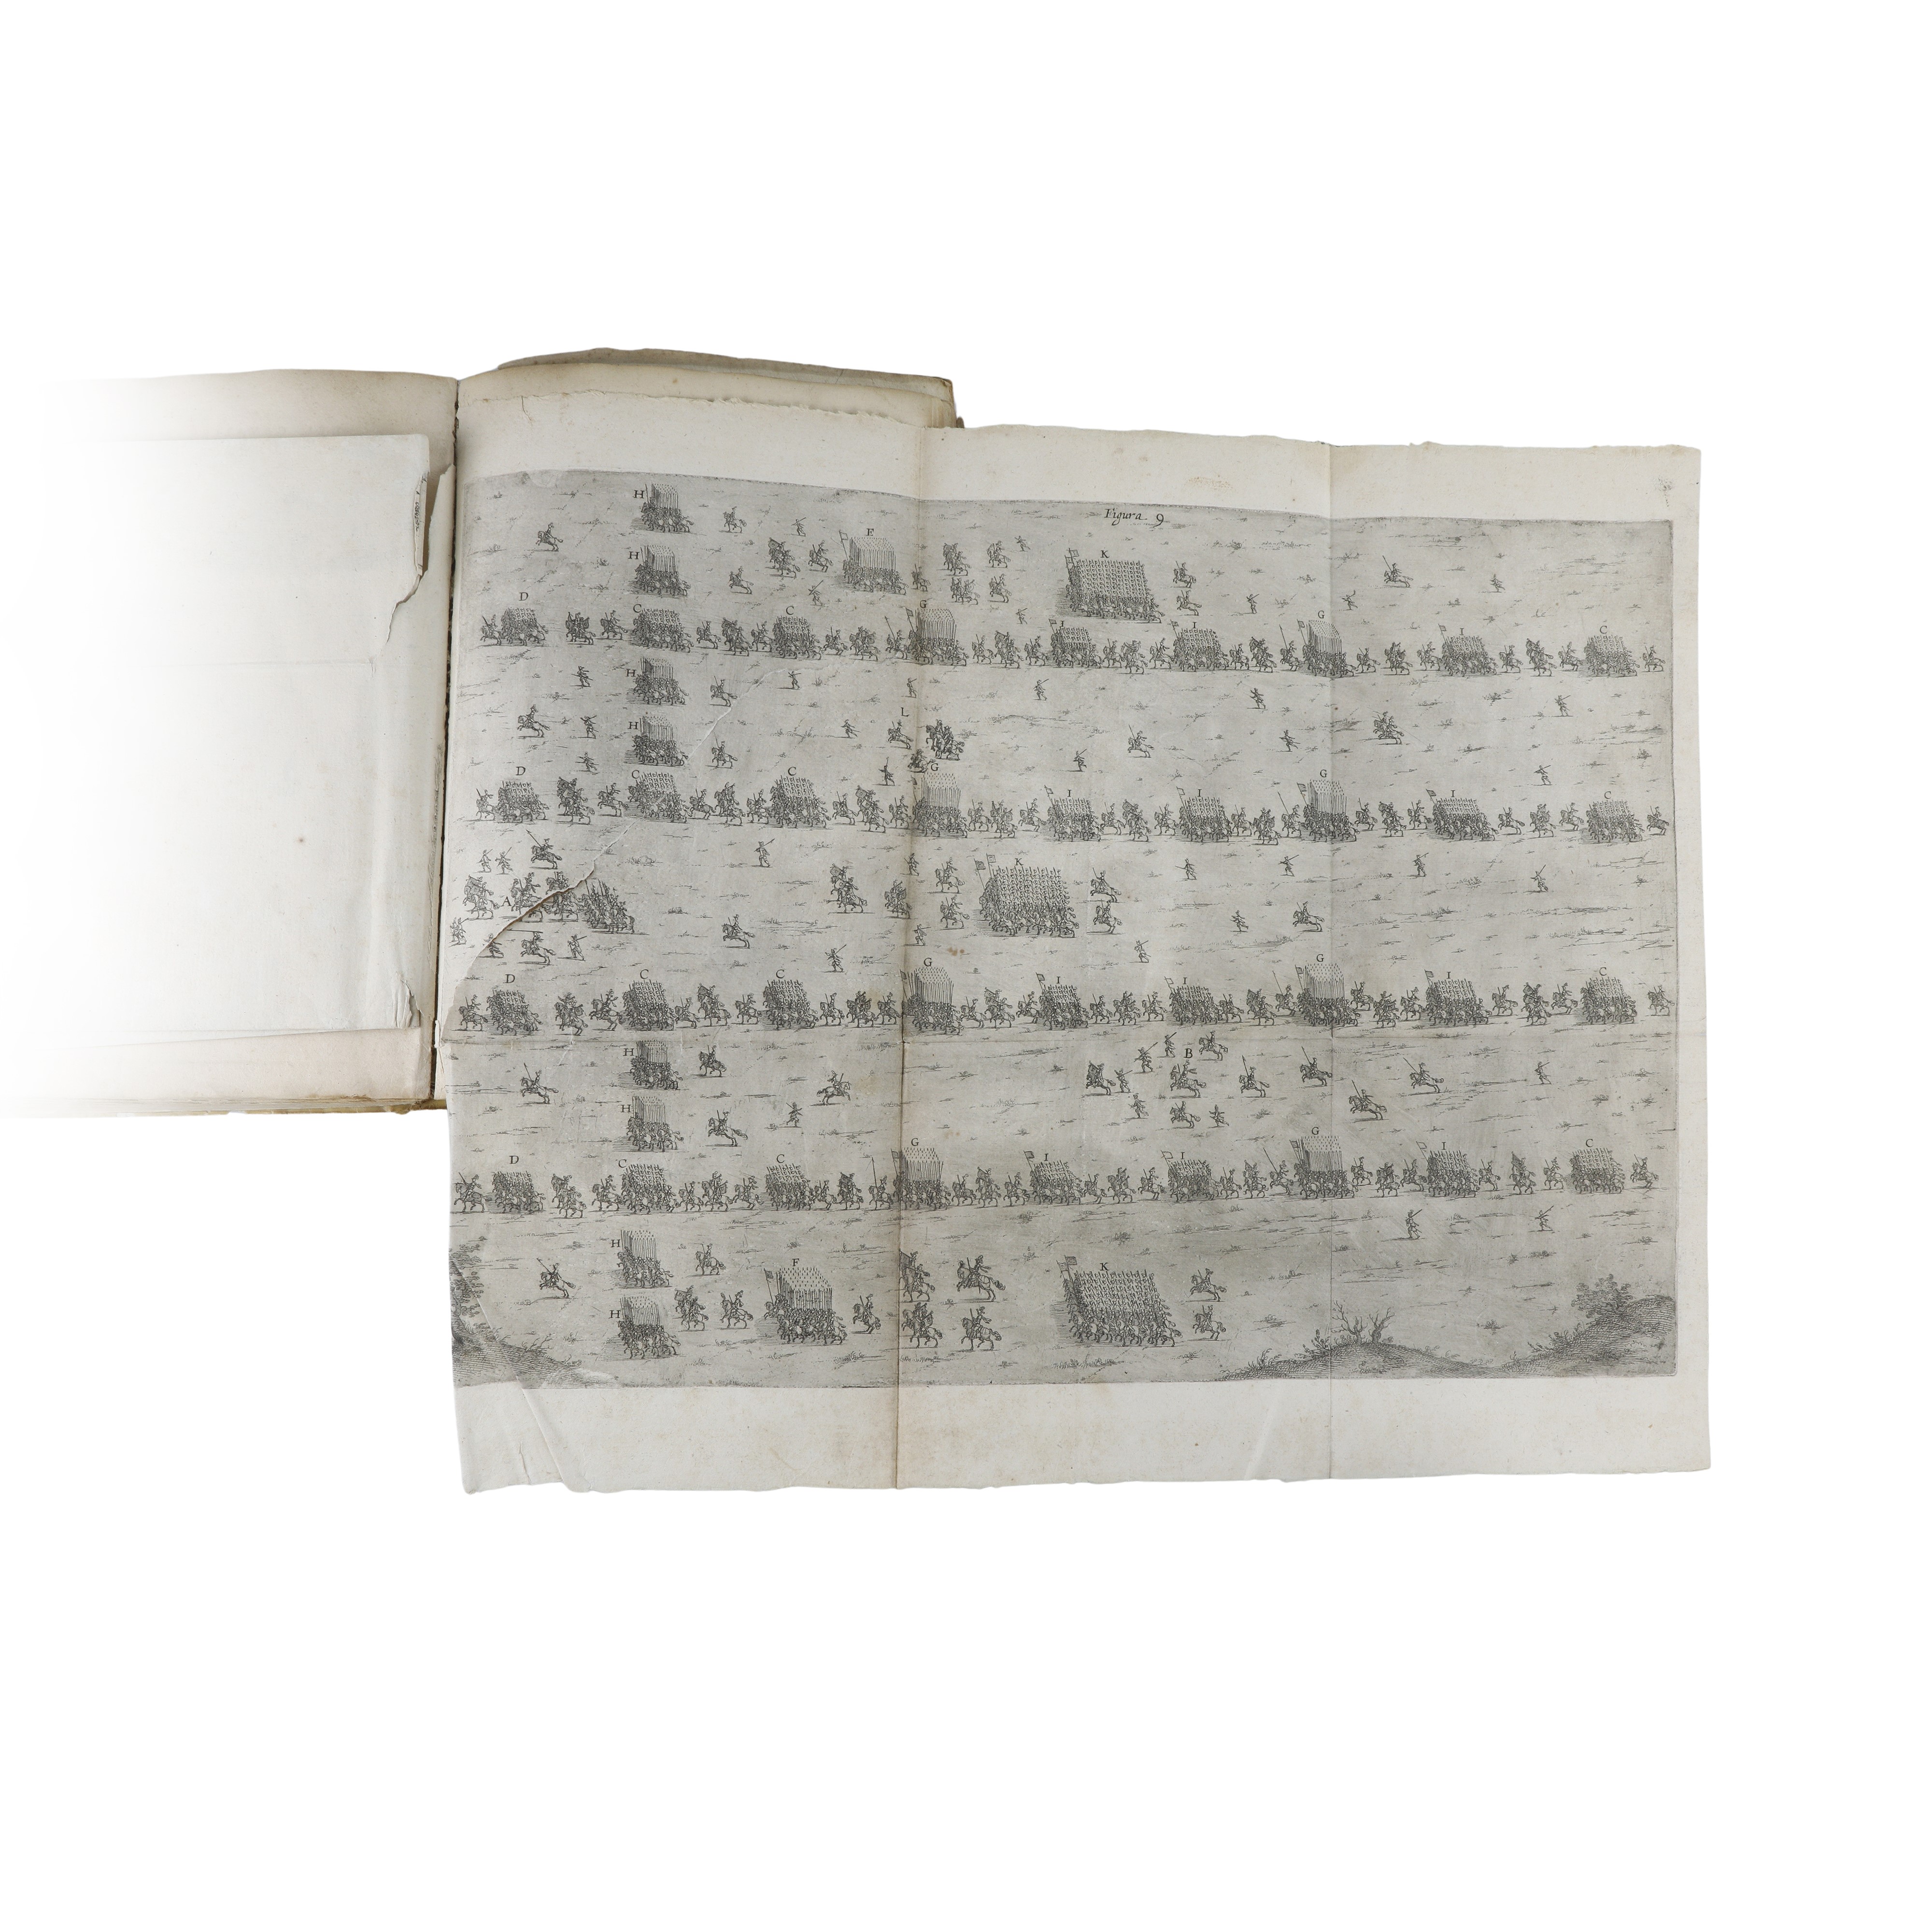 Figura 9
H
F
H
K
D C C G I I G I C
H
L
H
D C C G I I G I C
K
A
D C C G I I G I C
B
H
H
D C C G I I G I C
H
F K
H